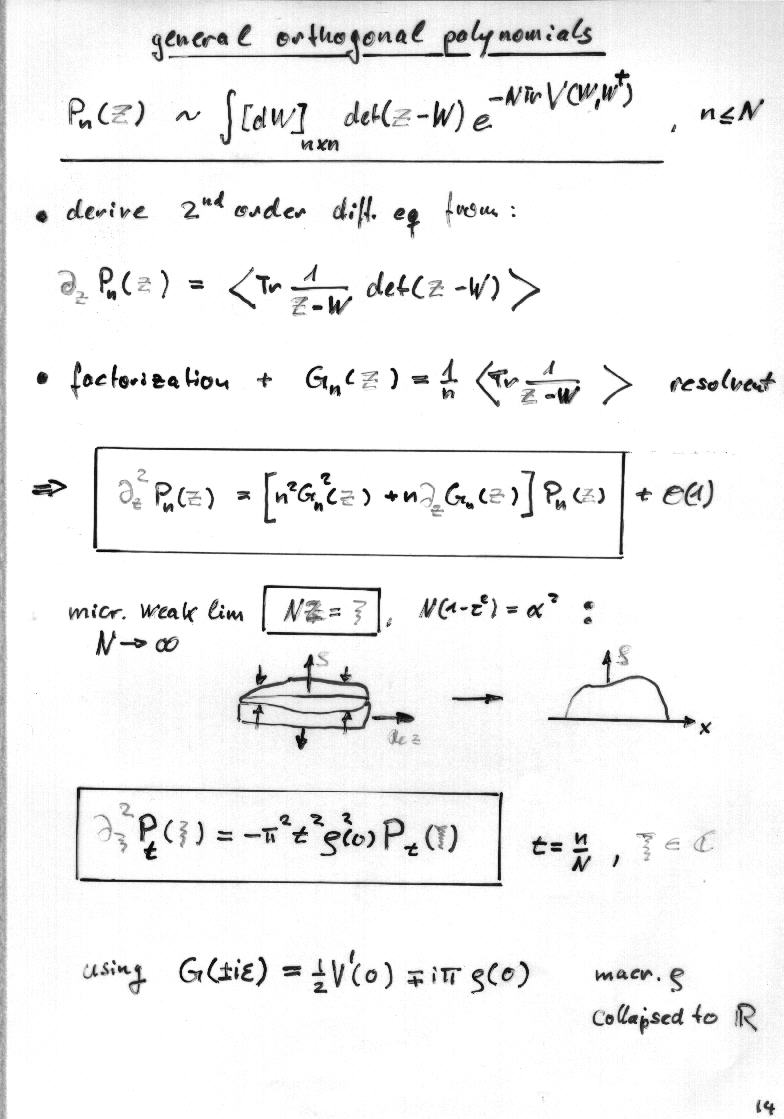 general orthogonal polynomials
Pₙ(z) ~ ∫[dW]ₙₓₙ det(z-W) e^{-N Tr V(W,W†)} , n ≤ N
• derive 2nd order diff. eq from:
∂_z Pₙ(z) = ⟨Tr 1/(z-W) det(z-W)⟩
• factorization + Gₙ(z) = 1/n ⟨Tr 1/(z-W)⟩ resolvent
⇒ ∂_z² Pₙ(z) = [n²Gₙ²(z) + n∂_z Gₙ(z)] Pₙ(z) + O(1)
micr. weak lim Nz = ξ , N(1-τ²) = α² :
N → ∞
ρ
Re z
→
ρ
x
∂_ξ² P_t(ξ) = -π² t² ρ²(0) P_t(ξ) t = n/N , ξ ∈ ℂ
using G(±iε) = ½V'(0) ∓ iπ ρ(0) macr. ρ
collapsed to ℝ
14